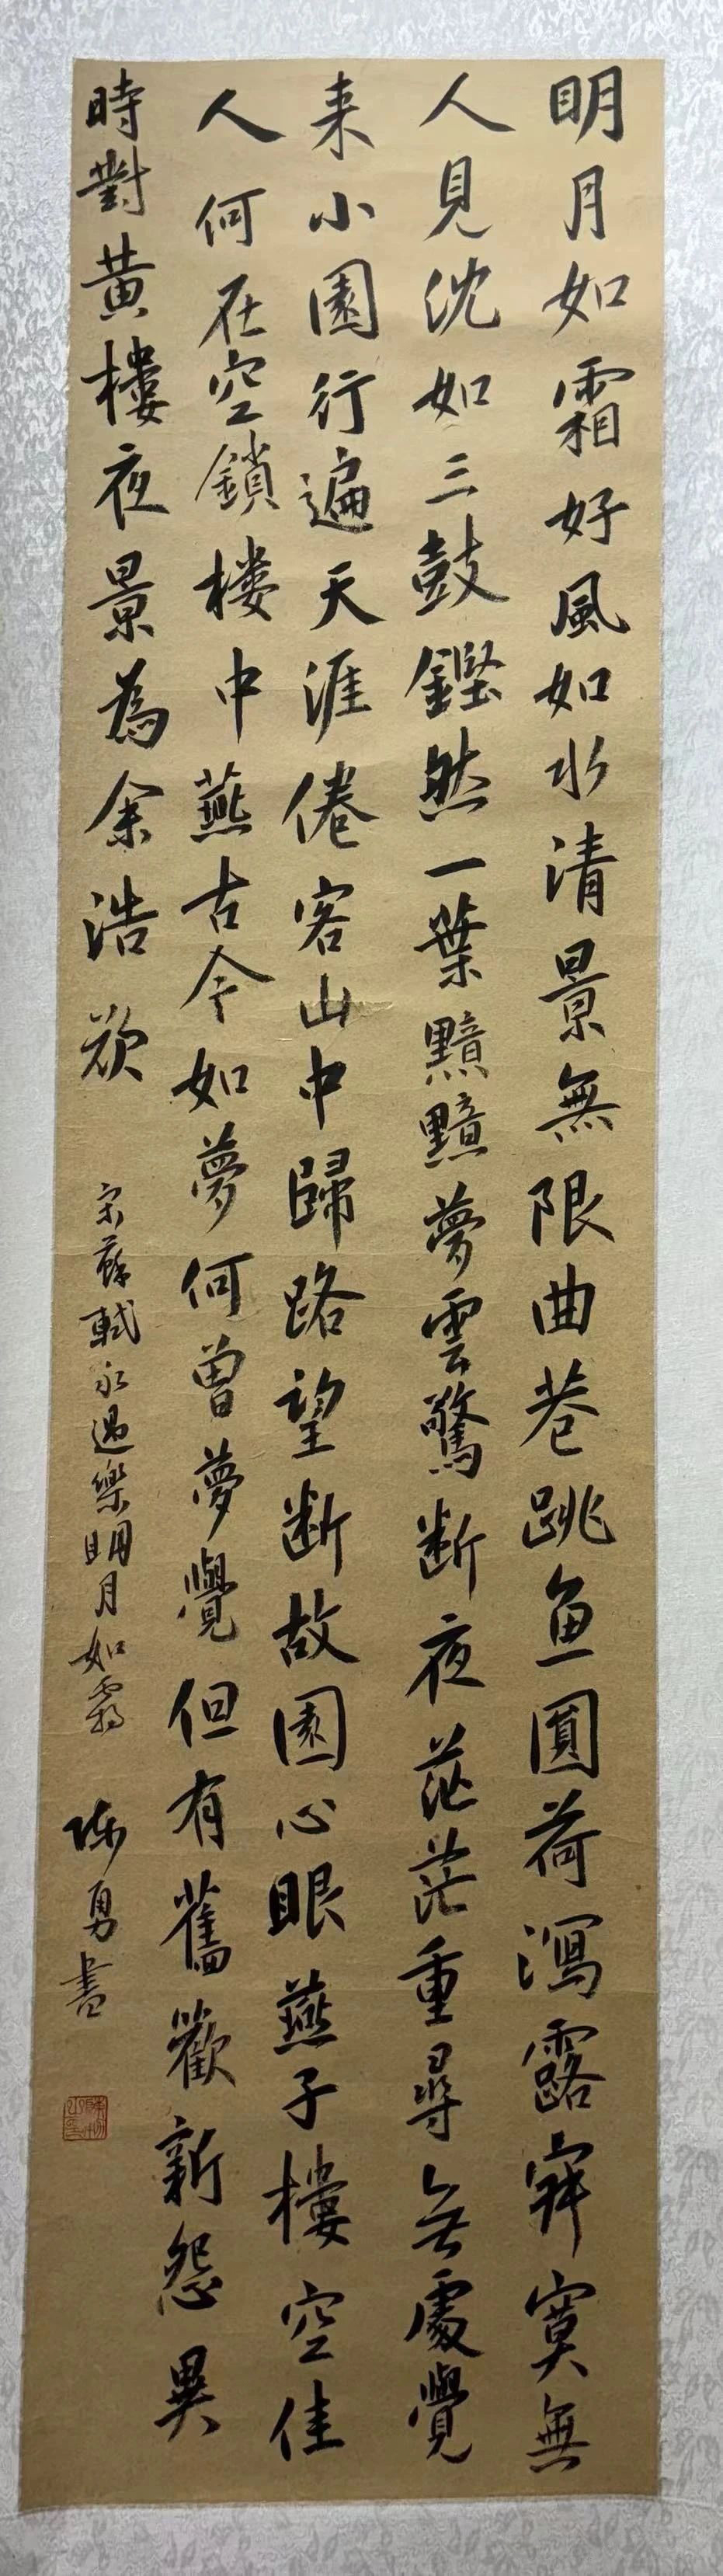 明月如霜好風如水清景無限曲巷跳鱼圓荷瀉露寂寞無
人見沈如三鼓鏗然一葉黯黯夢雲驚断夜茫茫重尋无處覺
来小園行遍天涯倦客山中歸路望断故園心眼燕子樓空佳
人何在空鎖樓中燕古今如夢何曾夢覺但有舊歡新怨異
時對黄樓夜景為余浩歎
宋蘇軾永遇樂明月如霜
陳勇書